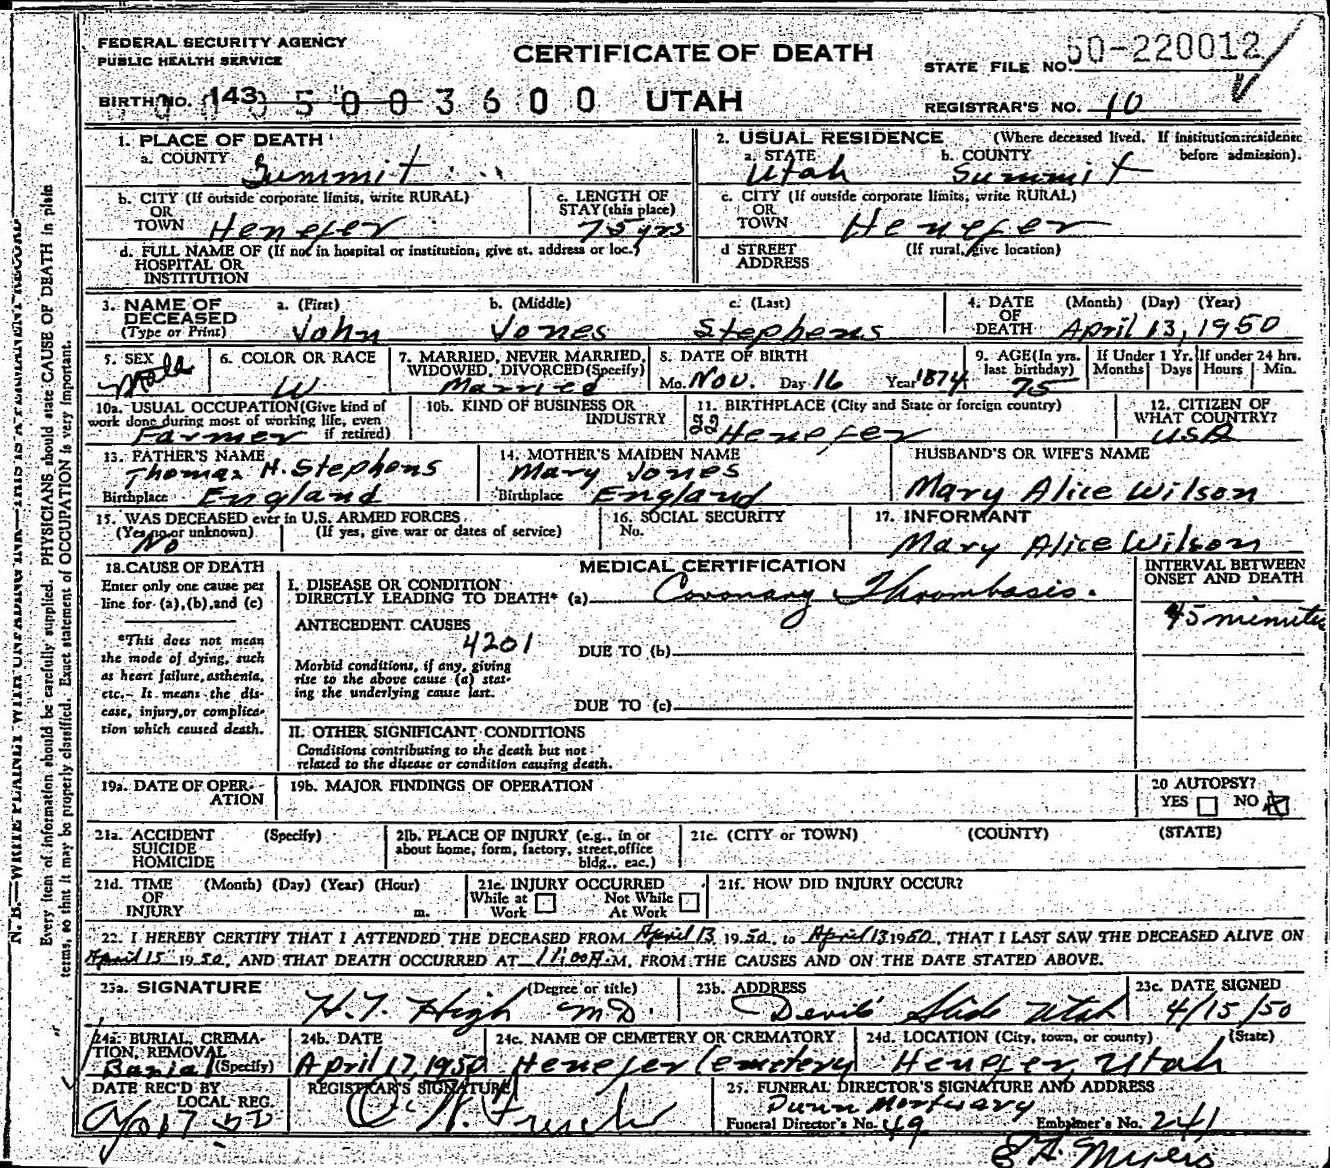 FEDERAL SECURITY AGENCY
PUBLIC HEALTH SERVICE
CERTIFICATE OF DEATH
STATE FILE NO. 50-220012
BIRTH NO. 143 5003600 UTAH
REGISTRAR'S NO. 10
1. PLACE OF DEATH
a. COUNTY Summit
2. USUAL RESIDENCE (Where deceased lived. If institution: residence before admission).
a. STATE Utah b. COUNTY Summit
b. CITY (If outside corporate limits, write RURAL) OR TOWN Henefer
c. LENGTH OF STAY (this place) 75 yrs
c. CITY (If outside corporate limits, write RURAL) OR TOWN Henefer
d. FULL NAME OF (If not in hospital or institution, give st. address or loc.) HOSPITAL OR INSTITUTION
d STREET ADDRESS (If rural, give location)
3. NAME OF DECEASED (Type or Print)
a. (First) John b. (Middle) Jones c. (Last) Stephens
4. DATE OF DEATH (Month) (Day) (Year) April 13, 1950
5. SEX Male
6. COLOR OR RACE W
7. MARRIED, NEVER MARRIED, WIDOWED, DIVORCED (Specify) Married
8. DATE OF BIRTH Mo. Nov. Day 16 Year 1874
9. AGE (In yrs. last birthday) 75
If Under 1 Yr. Months Days
If under 24 hrs. Hours Min.
10a. USUAL OCCUPATION (Give kind of work done during most of working life, even if retired) Farmer
10b. KIND OF BUSINESS OR INDUSTRY
11. BIRTHPLACE (City and State or foreign country) Henefer
12. CITIZEN OF WHAT COUNTRY? USA
13. FATHER'S NAME Thomas H. Stephens
Birthplace England
14. MOTHER'S MAIDEN NAME Mary Jones
Birthplace England
HUSBAND'S OR WIFE'S NAME
Mary Alice Wilson
15. WAS DECEASED ever in U.S. ARMED FORCES
(Yes, no or unknown) No (If yes, give war or dates of service)
16. SOCIAL SECURITY No.
17. INFORMANT
Mary Alice Wilson
18. CAUSE OF DEATH
Enter only one cause per line for (a), (b), and (c)
*This does not mean the mode of dying, such as heart failure, asthenia, etc. It means the disease, injury, or complication which caused death.
MEDICAL CERTIFICATION
INTERVAL BETWEEN ONSET AND DEATH
I. DISEASE OR CONDITION DIRECTLY LEADING TO DEATH* (a) Coronary Thrombasis.
45 minutes
ANTECEDENT CAUSES
4201
Morbid conditions, if any, giving rise to the above cause (a) stating the underlying cause last.
DUE TO (b)
DUE TO (c)
II. OTHER SIGNIFICANT CONDITIONS
Conditions contributing to the death but not related to the disease or condition causing death.
19a. DATE OF OPERATION
19b. MAJOR FINDINGS OF OPERATION
20 AUTOPSY? YES NO X
21a. ACCIDENT SUICIDE HOMICIDE (Specify)
21b. PLACE OF INJURY (e.g., in or about home, form, factory, street, office bldg., eac.)
21c. (CITY or TOWN) (COUNTY) (STATE)
21d. TIME OF INJURY (Month) (Day) (Year) (Hour) m.
21e. INJURY OCCURRED While at Work Not While At Work
21f. HOW DID INJURY OCCUR?
22. I HEREBY CERTIFY THAT I ATTENDED THE DECEASED FROM April 13 1950, to April 13 1950, THAT I LAST SAW THE DECEASED ALIVE ON
April 15 1950, AND THAT DEATH OCCURRED AT 11:00 A.M. FROM THE CAUSES AND ON THE DATE STATED ABOVE.
23a. SIGNATURE (Degree or title) H.T. High M.D.
23b. ADDRESS Devil's Slide Utah
23c. DATE SIGNED 4/15/50
24a. BURIAL, CREMATION, REMOVAL (Specify) Burial
24b. DATE April 17, 1950
24c. NAME OF CEMETERY OR CREMATORY Henefer Cemetery
24d. LOCATION (City, town, or county) (State) Henefer, Utah
DATE REC'D BY LOCAL REG.
REGISTRAR'S SIGNATURE
25. FUNERAL DIRECTOR'S SIGNATURE AND ADDRESS
Dunn Mortuary
Funeral Director's No. 49 Embalmer's No. 241
E A. Myers
N. B.—WRITE PLAINLY WITH UNFADING INK—THIS IS A PERMANENT RECORD
Every item of information should be carefully supplied. PHYSICIANS should state CAUSE OF DEATH in plain
terms, so that it may be properly classified. Exact statement of OCCUPATION is very important.